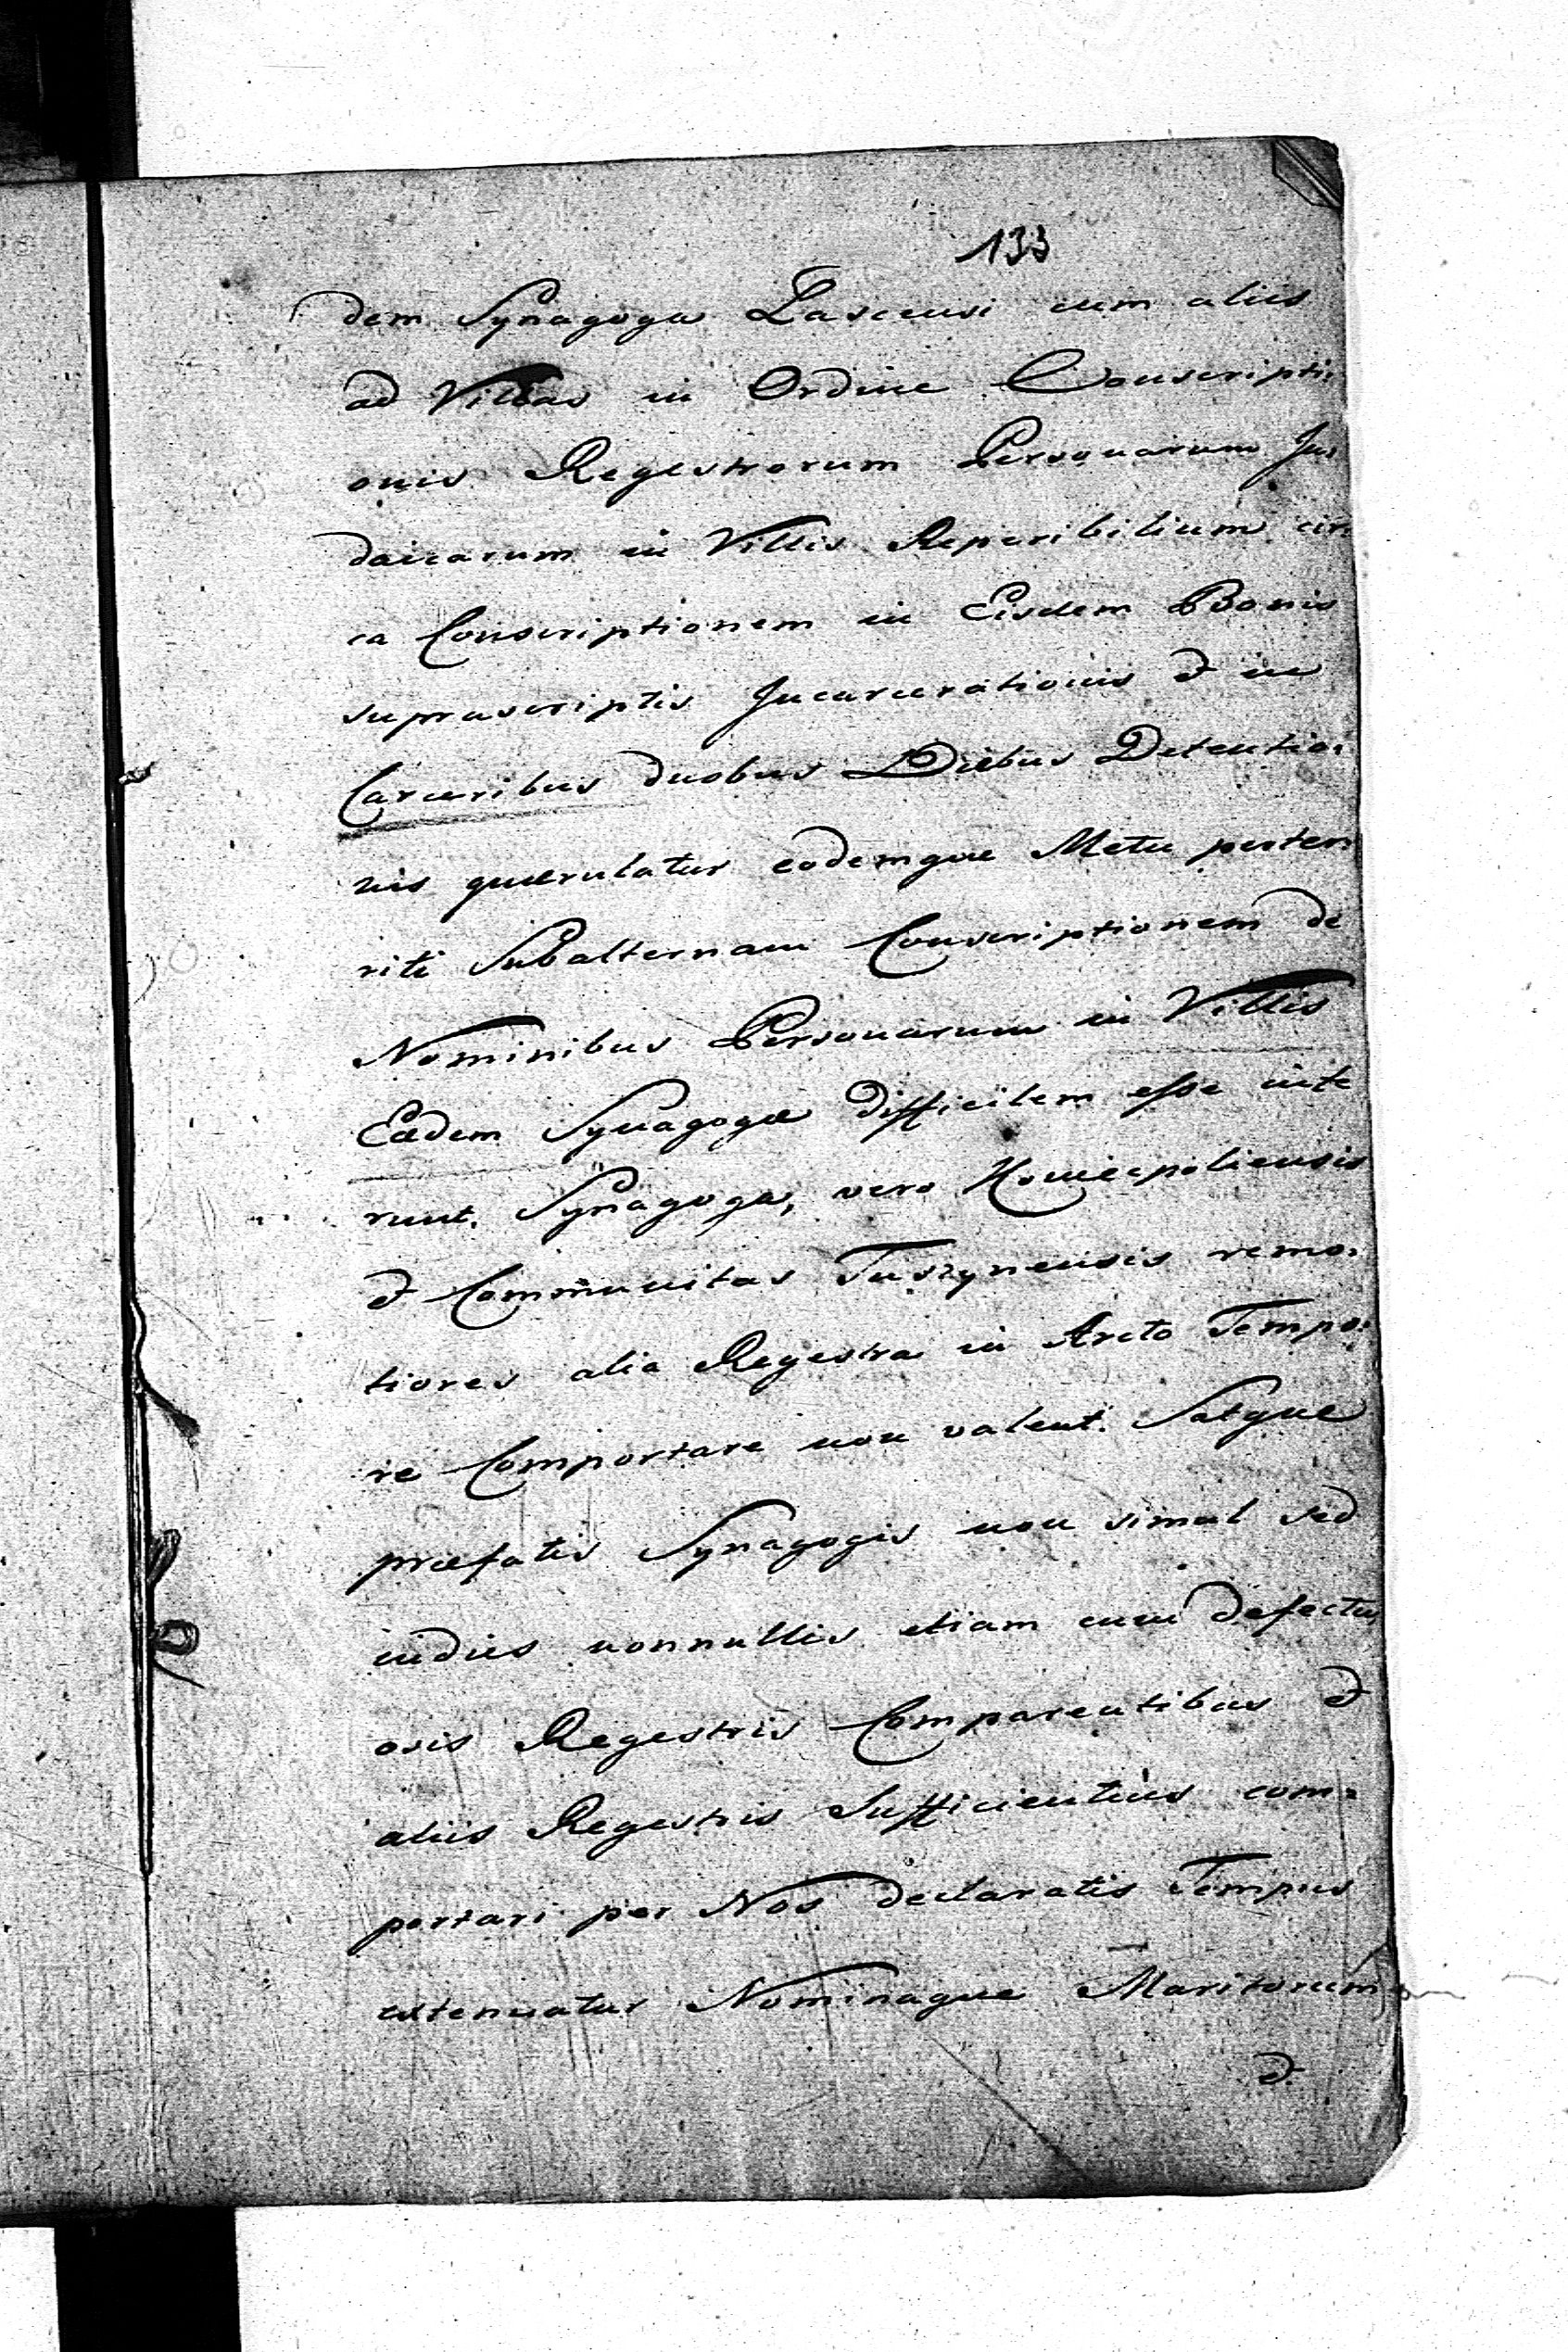 133
dem Synagoga Lascensi cum aliis
ad Villas in Ordine Conscripti:
onis Regestrorum Personarum Ju:
daicarum in Villis Reperibilium cir:
ca Conscriptionem in Eisdem Bonis
supruscriptis Incarcerationis et in
Carceribus duobus Diebus Detentio:
nis quaerulatur eodemque Metu perter:
riti Subalternam Conscriptionem de
Nominibus Personarum in Villis
Eaedem Synagogae difficilem esse
runt. Synagoga, vero
et Communitas Tuszynensis remo:
tiores alia Regestra in Arcto Tempo:
re Comportare non valent. Satque
praefatis Synagogis non simul sed
indies nonnullis etiam cum defectu
osis Regestris Comparentibus et
aliis Regestris Sufficientius com:
portari per Nos declaratis Tempus
extenuatur Nominaque Maritorum
et